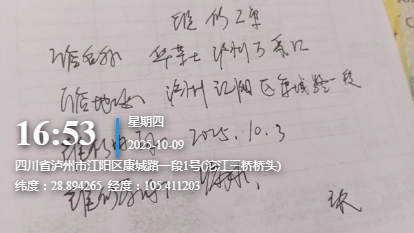 维修工单
门店名称 华莱士 泸州万象汇
门店地址 泸州江阳区康城路一段
16:53
星期四
2025-10-09
2025.10.3
四川省泸州市江阳区康城路一段1号(沱江三桥桥头)
纬度：28.894265 经度：105.411203